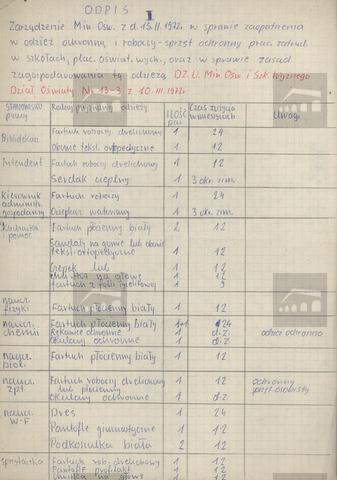 ODPIS I
Zarządzenie Min. Ośw. z d. 15.II.1972r w sprawie zaopatrzenia
w odzież ochronną i roboczą - sprzęt ochronny prac. zatrud.
w szkołach, plac. oświat. wych., oraz w sprawie zasad
zagospodarowania tą odzieżą DZ. U. Min. Ośw. i Szk. Wyższego
Dział Oświaty Nr 13-3 z 10.III.1972r
stanowisko pracy Rodzaj odzieży ilość par Czas zużycia w miesiącach Uwagi
Bibliotekarz Fartuch roboczy drelichowy 1 24
Obuwie tekst. ortopedyczne 1 12
Intendent Fartuch roboczy drelichowy 1 12
Serdak ciepłny 1 3 okr. zim.
Kierownik administr. gospodarczy Fartuch roboczy 1 24
Ocieplacz watowany 1 3 okr. zim.
Kucharka pomoc Fartuch płócienny biały 2 12
Sandały na gumie lub obuwie
tekst. ortopedyczne 1 12
Czepek lub 1 12
chustka na głowę 1 12
fartuch z folii 1 9
naucz. fizyki Fartuch płócienny biały 1 12
naucz. chemii Fartuch płócienny biały 1+1 24 odzież ochronna
Rękawice ochronne 1 d.z.
okulary ochronne 1 d.z.
naucz. biol. Fartuch płócienny biały 1 12
naucz. zpt. Fartuch roboczy drelichowy 1 12 ochronny
lub płócienny
Okulary ochronne 1 d.z.
naucz. W-F Dres 1 24
Pantofle gimnastyczne 1 12
Podkoszulka biała 2 12
Sprzątaczka Fartuch rob. drelichowy 1 12
Pantofle profilakt 1 12
Chustka na głowę 1 12